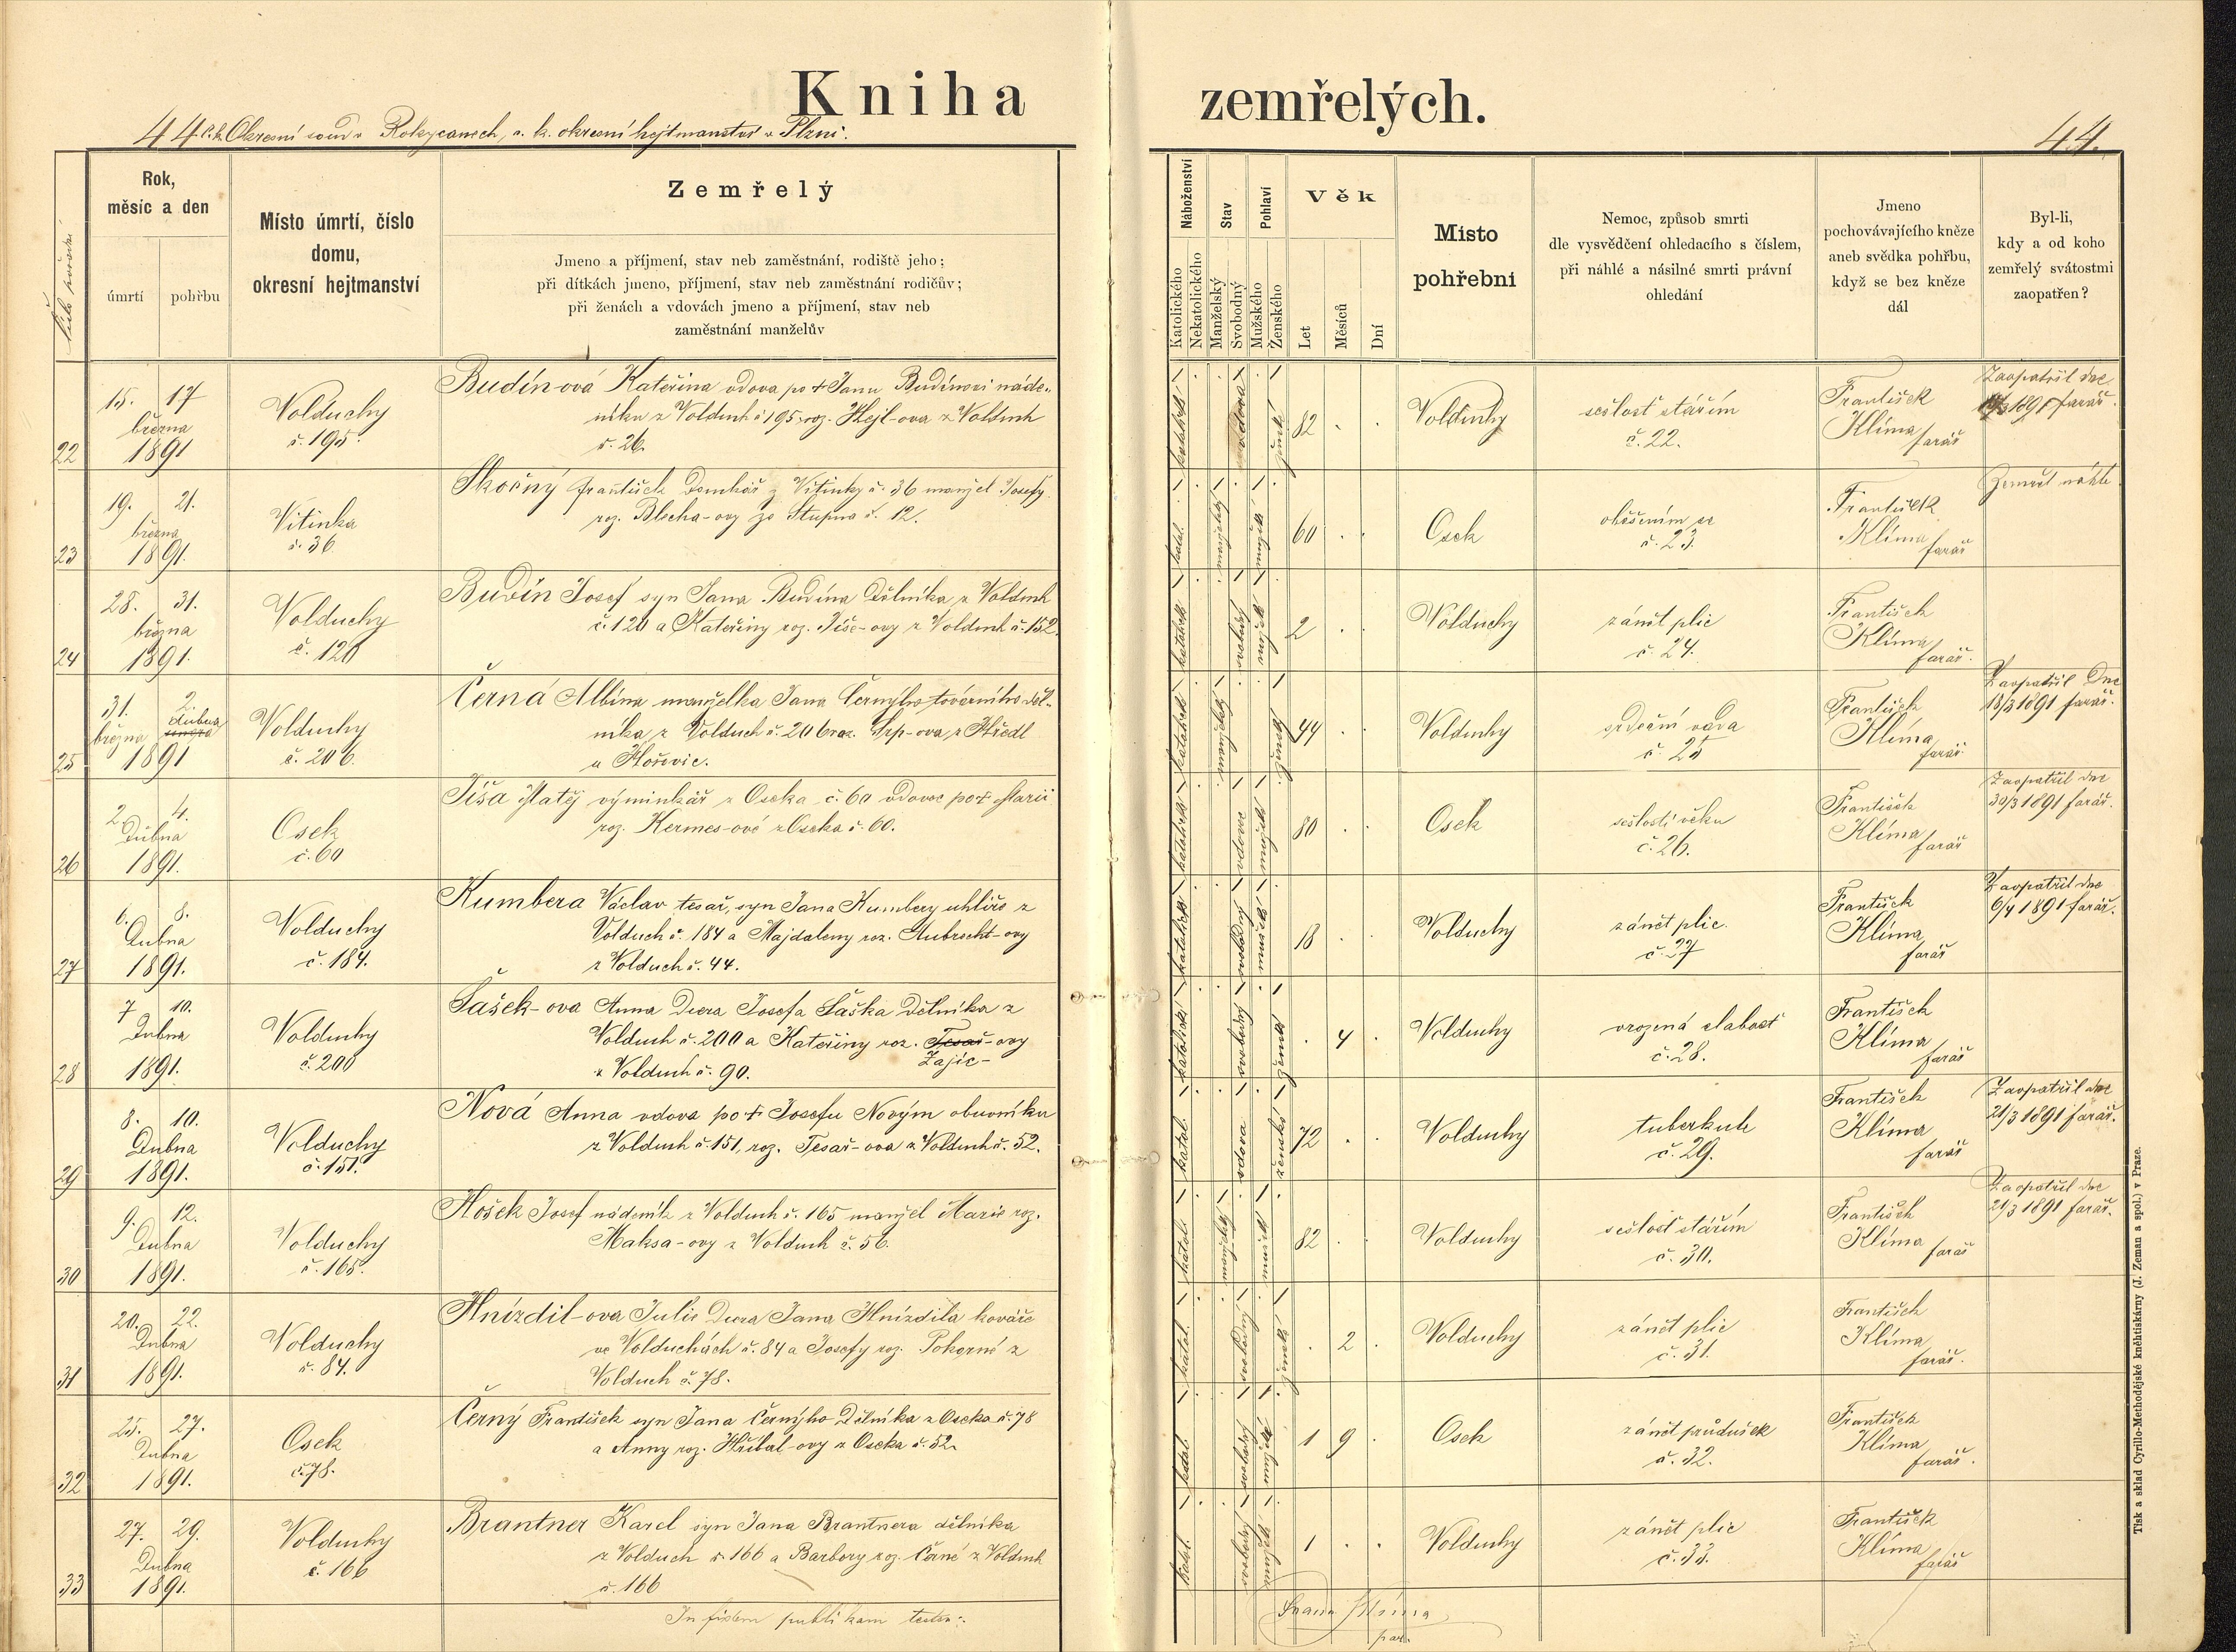 Kniha zemřelých.
44. C. k. Okresní soud v Rokycanech, c. k. okresní hejtmanství v Plzni. 44.
Číslo pořadu
Rok,
měsíc a den
úmrtí
pohřbu
Místo úmrtí, číslo
domu,
okresní hejtmanství
Zemřelý
Jmeno a příjmení, stav neb zaměstnání, rodiště jeho;
při dítkách jmeno, příjmení, stav neb zaměstnání rodičův;
při ženách a vdovách jmeno a příjmení, stav neb
zaměstnání manželův
Náboženství
Katolického
Nekatolického
Stav
Manželský
Svobodný
Pohlaví
Mužského
Ženského
Věk
Let
Měsíců
Dní
Místo
pohřební
Nemoc, způsob smrti
dle vysvědčení ohledacího s číslem,
při náhlé a násilné smrti právní
ohledání
Jmeno
pochovávajícího kněze
aneb svědka pohřbu,
když se bez kněze
dál
Byl-li,
kdy a od koho
zemřelý svátostmi
zaopatřen?
22
15. 17
března
1891
Volduchy
č. 195.
Budín-ová Kateřina vdova po † Janu Budínovi náde-
níku z Volduch č 195, roz. Hejl-ova z Volduch
č. 26.
katolické vdova ženské 82 Volduchy
sešlost stářím
č. 22.
František
Klíma
farář
Zaopatřil dne
/3 1891 farář.
23
19. 21.
března
1891.
Vitinka
č. 36
Skočný František Domkář z Vitinky č. 36 manžel Josefy
roz. Blecha-ovy ze Stupna č. 12.
katol. manželský mužské 60 Osek
oběšením se
č. 23.
František
Klíma
farář
Zemřel náhle
24
28. 31.
března
1891.
Volduchy
č. 120
Budín Josef syn Jana Budína Dělníka z Volduch
č. 120 a Kateřiny roz. Jíše-ovy z Volduch č. 152.
katolické svobodný mužské 2 Volduchy
zánět plic
č. 24.
František
Klíma
farář.
25
31. 2.
března dubna
1891
Volduchy
č. 206.
Černá Albína manželka Jana Černýho továrního děl-
níka z Volduch č. 206 roz. Srp-ova z Hředl
u Hořovic.
katolické manželský ženské 44 Volduchy
srdeční vada
č. 25
František
Klíma
farář.
Zaopatřil Dne
18/3 1891 farář.
26
2. 4.
Dubna
1891.
Osek
č. 60
Jíša Matěj výminkář z Oseka č. 60 vdovec po † Marii
roz. Kermes-ové z Oseka č. 60.
katolické vdovec mužské 80 Osek
sešlostí věku
č. 26.
František
Klíma
farář
Zaopatřil dne
30/3 1891 farář.
27
6. 8.
Dubna
1891.
Volduchy
č. 184.
Kumbera Václav tesař, syn Jana Kumbery uhlíře z
Volduch č. 184 a Majdaleny roz. Aubrecht-ovy
z Volduch č. 44.
katolické svobodný mužské 18 Volduchy
zánět plic.
č. 27
František
Klíma
farář
Zaopatřil dne
6/4 1891 farář.
28
7 10.
Dubna
1891.
Volduchy
č. 200
Šašek-ova Anna Dcera Josefa Šaška Dělníka z
Volduch č. 200 a Kateřiny roz. Tesař-ovy
Zajíc-
z Volduch č. 90.
katolické svobodný ženské 4 Volduchy
vrozená slabost
č. 28.
František
Klíma
farář
29
8. 10.
Dubna
1891.
Volduchy
č. 151.
Nová Anna vdova po † Josefu Novým obuvníku
z Volduch č. 151, roz. Tesař-ova z Volduch č. 52.
katol. vdova ženské 72 Volduchy
tuberkule
č. 29.
František
Klíma
farář
Zaopatřil dne
21/3 1891 farář.
30
9. 12.
Dubna
1891.
Volduchy
č. 165.
Hošek Josef nádeník z Volduch č. 165 manžel Marie roz.
Maksa-ovy z Volduch č. 56.
katol. manželský mužské 82 Volduchy
sešlost stářím
č. 30.
František
Klíma
farář
Zaopatřil dne
21/3 1891 farář.
31
20. 22.
Dubna
1891.
Volduchy
č. 84.
Hnízdil-ova Julie Dcera Jana Hnízdila kováře
ve Volduchách č. 84 a Josefy roz. Pokorné z
Volduch č. 78.
katol. svobodný ženské 2 Volduchy
zánět plic
č. 31.
František
Klíma
farář.
32
25. 27.
Dubna
1891.
Osek
č. 78.
Černý František syn Jana Černýho Dělníka z Oseka č. 78
a Anny roz. Hříbal-ovy z Oseka č. 52.
katol. svobodný mužské 1 9 Osek
zánět průdušek
č. 32.
František
Klíma
farář.
33
27. 29.
Dubna
1891.
Volduchy
č. 166
Brantner Karel syn Jana Brantnera dělníka
z Volduch č. 166 a Barbory roz. Černé z Volduch
č. 166
katol. svobodný mužské 1 Volduchy
zánět plic
č. 33.
František
Klíma
farář
In fidem publikam testor:
Franz Klíma
par.
Tisk a sklad Cyrillo-Methodějské kněhtiskárny (J. Zeman a spol.) v Praze.